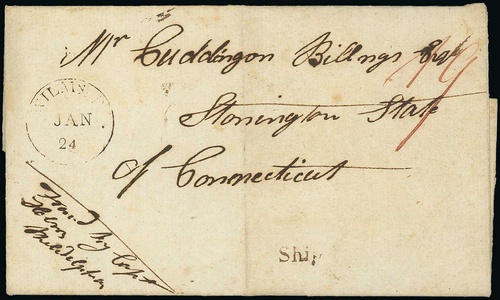 Mr Cuddingon Billings Esqr
Stonington State
of Connecticut
WILM
JAN
24
by Capt
Philadelphia
Shi